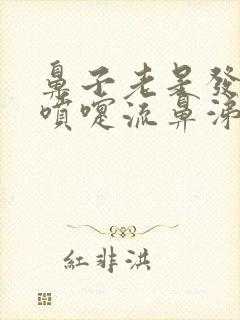 鼻子老是發
噴嚏流鼻涕
紅非洪